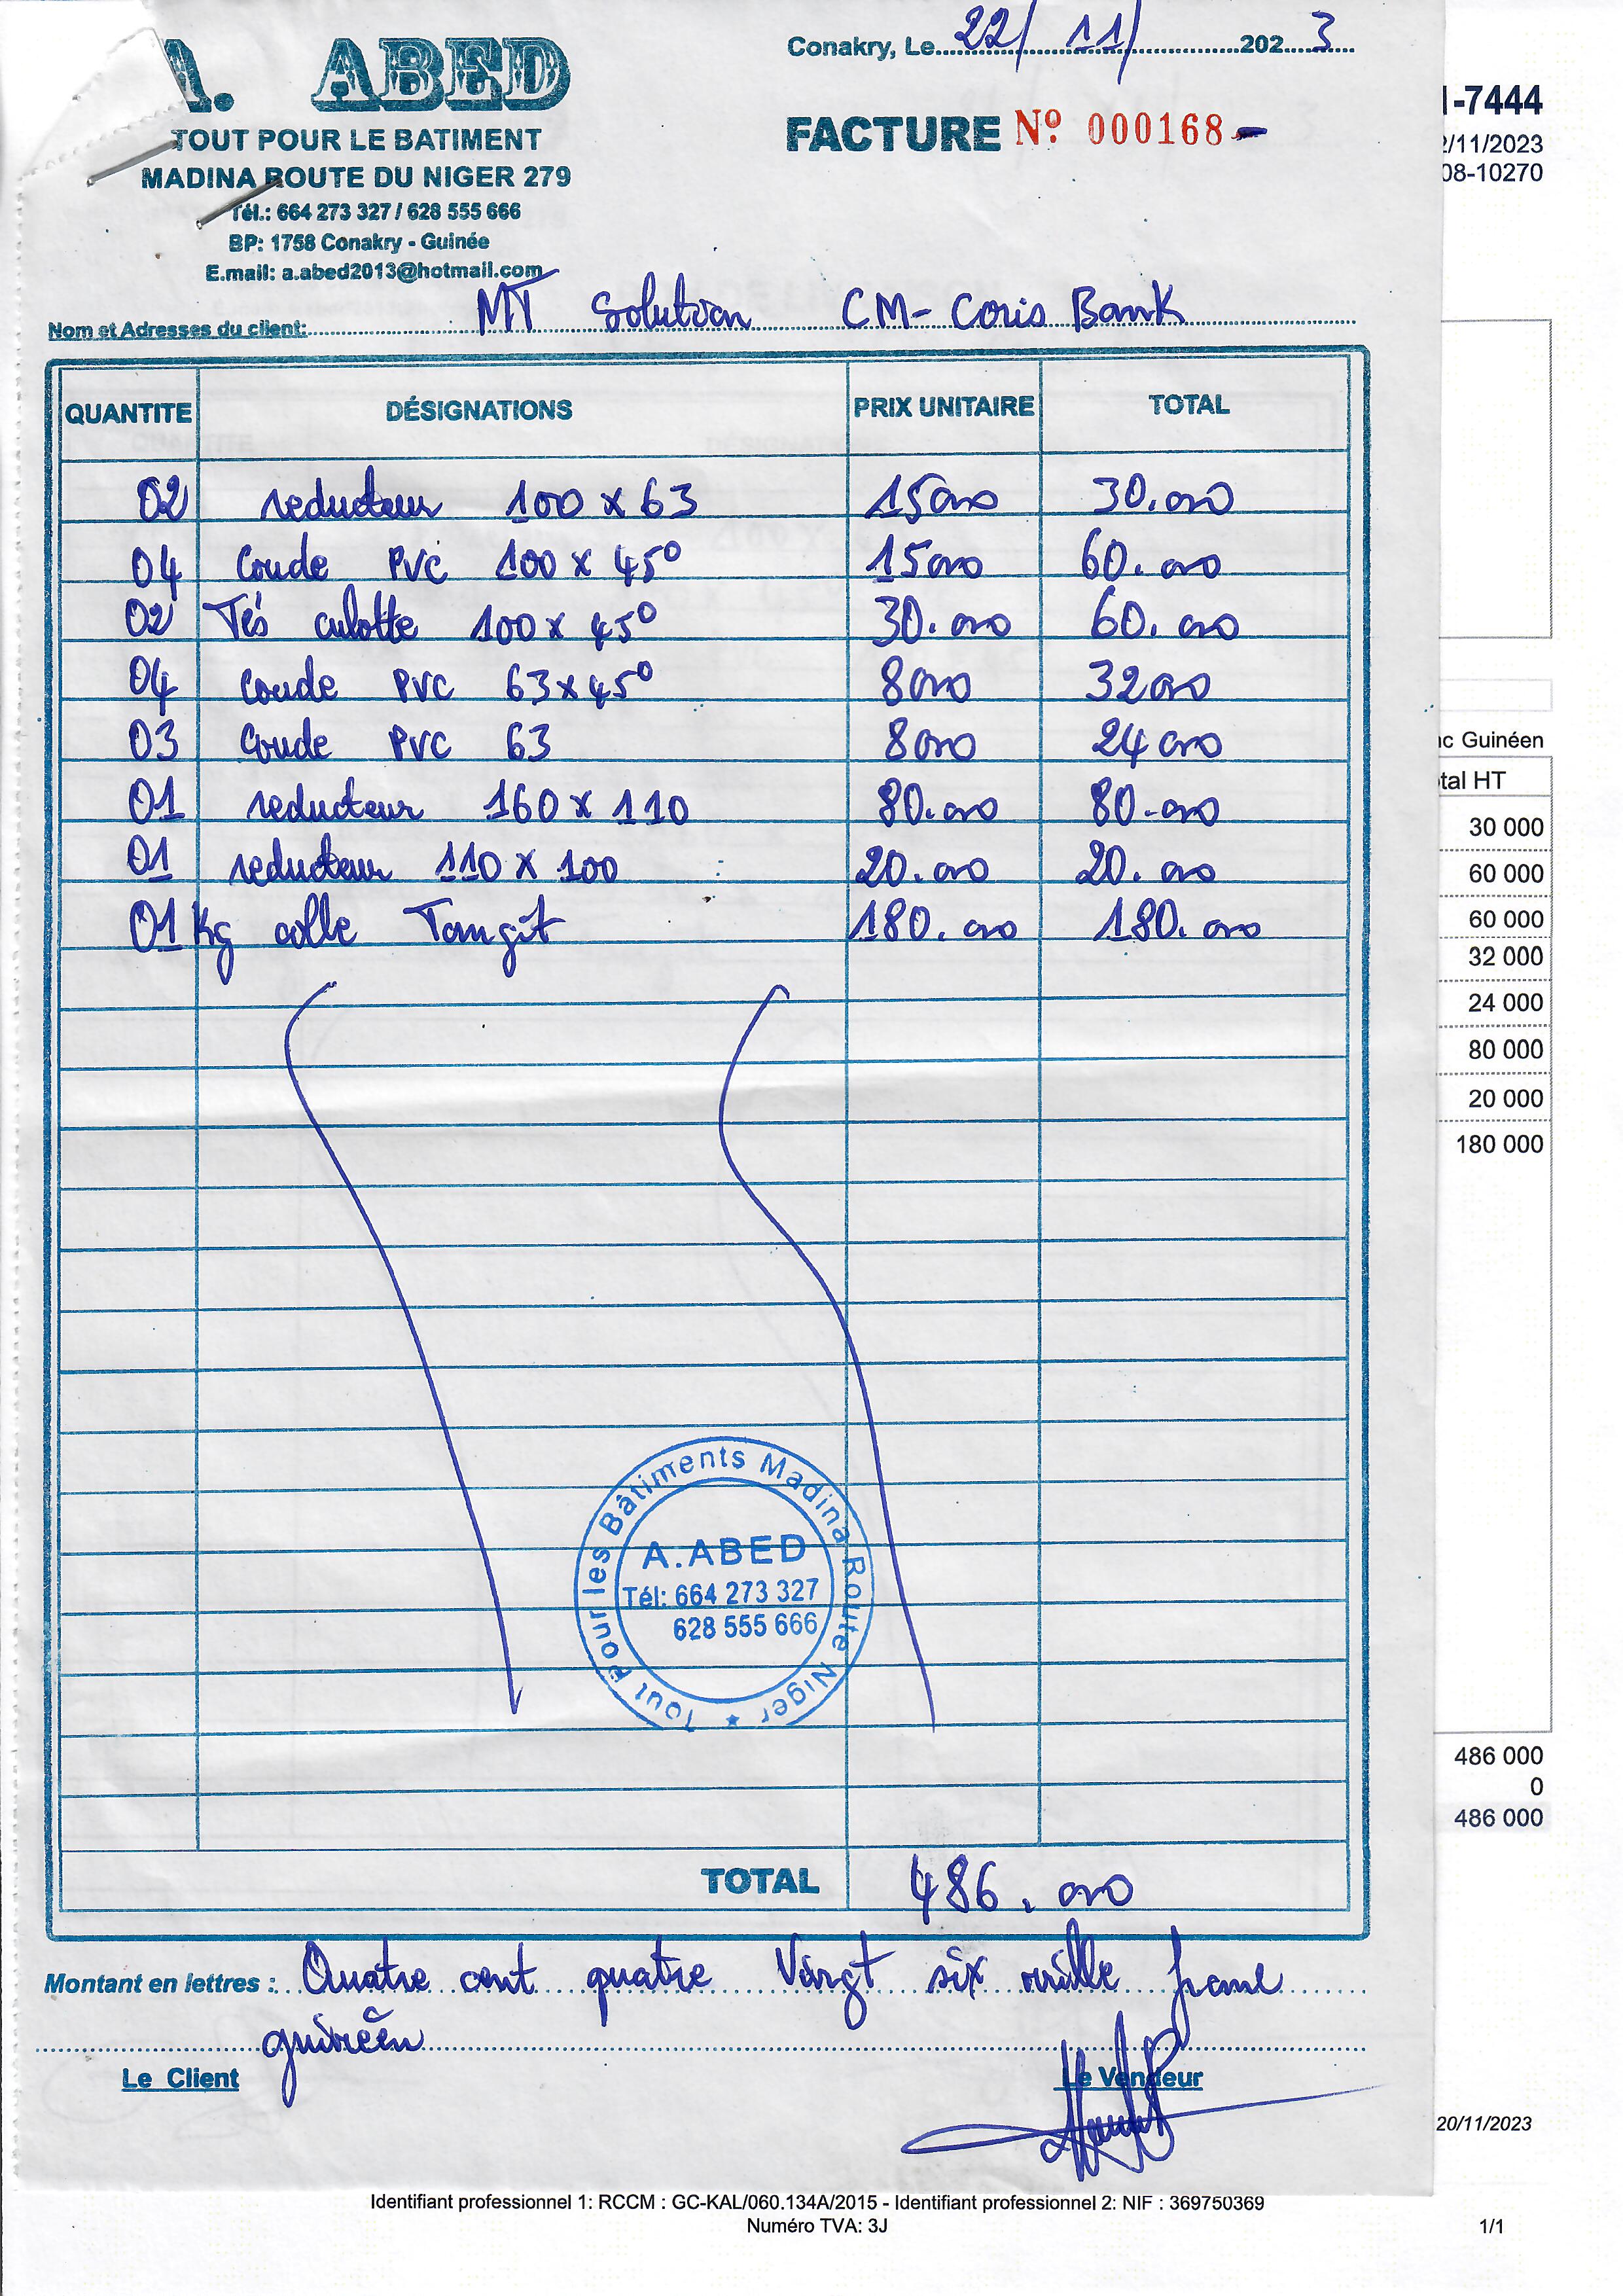 Conakry, Le 22/ 11/ 2023
A. ABED
TOUT POUR LE BATIMENT
MADINA ROUTE DU NIGER 279
Tél.: 664 273 327 / 628 555 666
BP: 1758 Conakry - Guinée
E.mail: a.abed2013@hotmail.com
FACTURE Nº 000168-
1-7444
2/11/2023
08-10270
Nom et Adresses du client: MT Solution CM- Coris Bank
QUANTITE DÉSIGNATIONS PRIX UNITAIRE TOTAL
02 reducteur 100 x 63 15000 30.000
04 Coude PVC 100 x 45° 15000 60.000
02 Tés culotte 100 x 45° 30.000 60.000
04 Coude PVC 63x45° 8000 32000
03 Coude PVC 63 8000 24000
01 reducteur 160 x 110 80.000 80.000
01 reducteur 110 x 100 20.000 20.000
01 Kg colle Tangit 180.000 180.000
nc Guinéen
tal HT
30 000
60 000
60 000
32 000
24 000
80 000
20 000
180 000
Tout Pour les Bâtiments Madina Route Niger ★
A.ABED
Tél: 664 273 327
628 555 666
486 000
0
486 000
TOTAL 486.000
Montant en lettres : Quatre cent quatre Vingt six mille franc
guinéen
Le Client Le Vendeur
20/11/2023
Identifiant professionnel 1: RCCM : GC-KAL/060.134A/2015 - Identifiant professionnel 2: NIF : 369750369
Numéro TVA: 3J
1/1